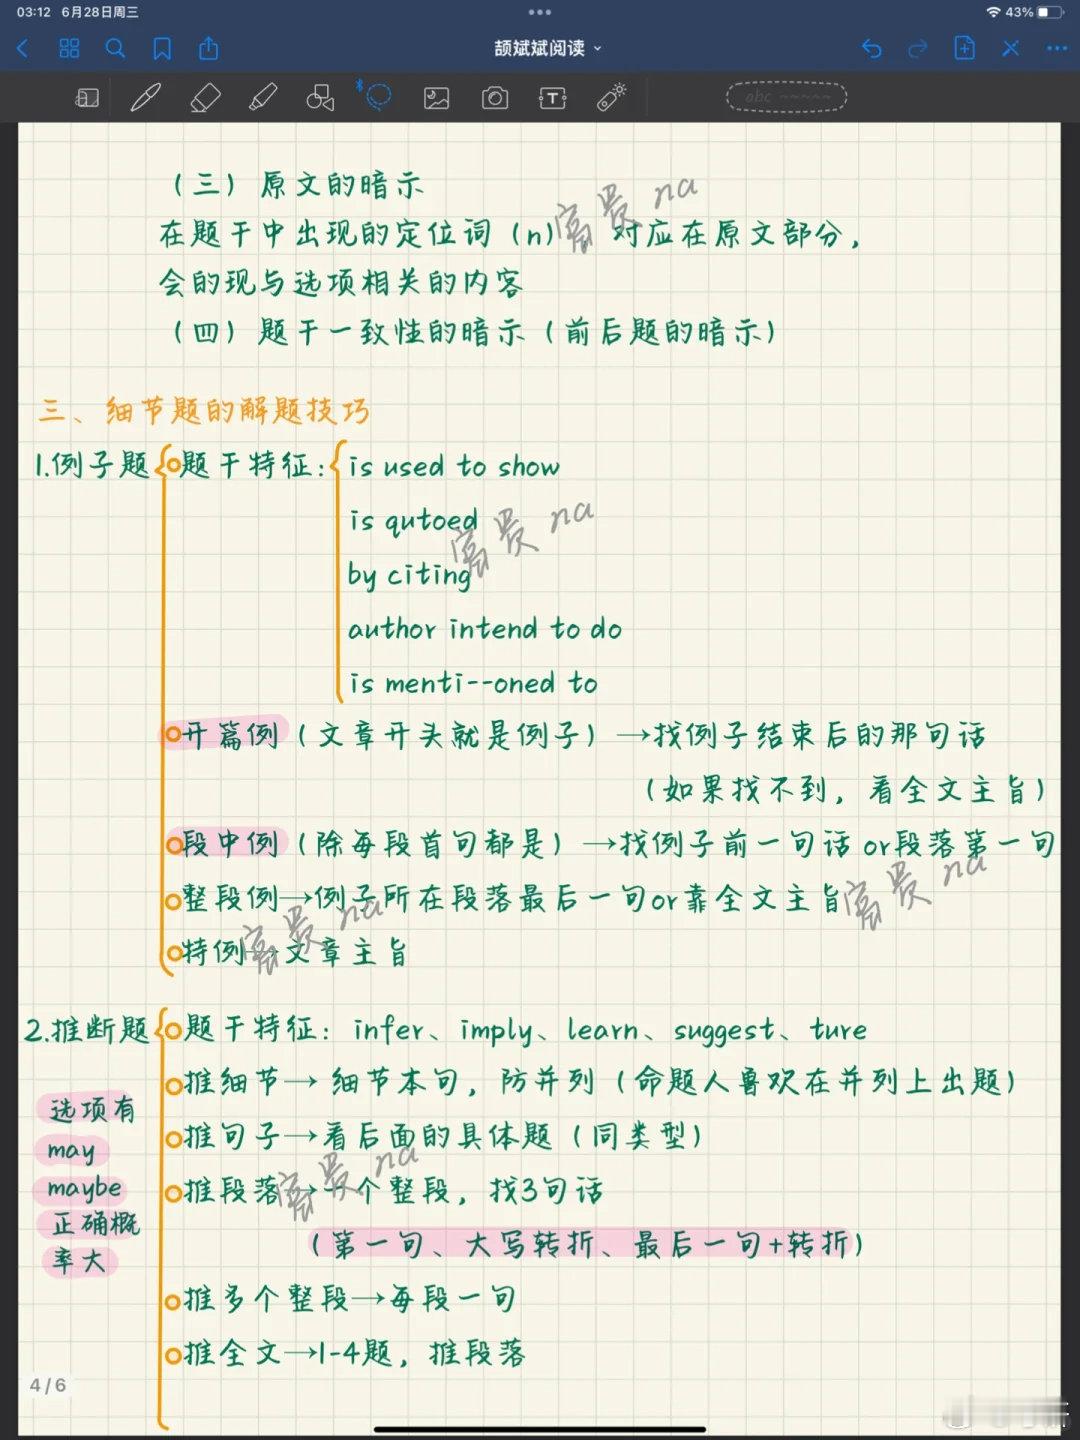 03:12 6月28日周三
43%
颉斌斌阅读
abc
（三）原文的暗示
在题干中出现的定位词（n） 对应在原文部分，
会的现与选项相关的内容
（四）题干一致性的暗示（前后题的暗示）
三、细节题的解题技巧
1.例子题
题干特征：
is used to show
is qutoed
by citing
author intend to do
is menti--oned to
开篇例（文章开头就是例子）→找例子结束后的那句话
（如果找不到，看全文主旨）
段中例（除每段首句都是）→找例子前一句话 or段落第一句
整段例→例子所在段落最后一句or靠全文主旨
特例→文章主旨
2.推断题
题干特征：infer、imply、learn、suggest、ture
推细节→细节本句，防并列（命题人喜欢在并列上出题）
推句子→看后面的具体题（同类型）
推段落→一个整段，找3句话
（第一句、大写转折、最后一句+转折）
推多个整段→每段一句
推全文→1-4题，推段落
选项有
may
maybe
正确概
率大
4/6